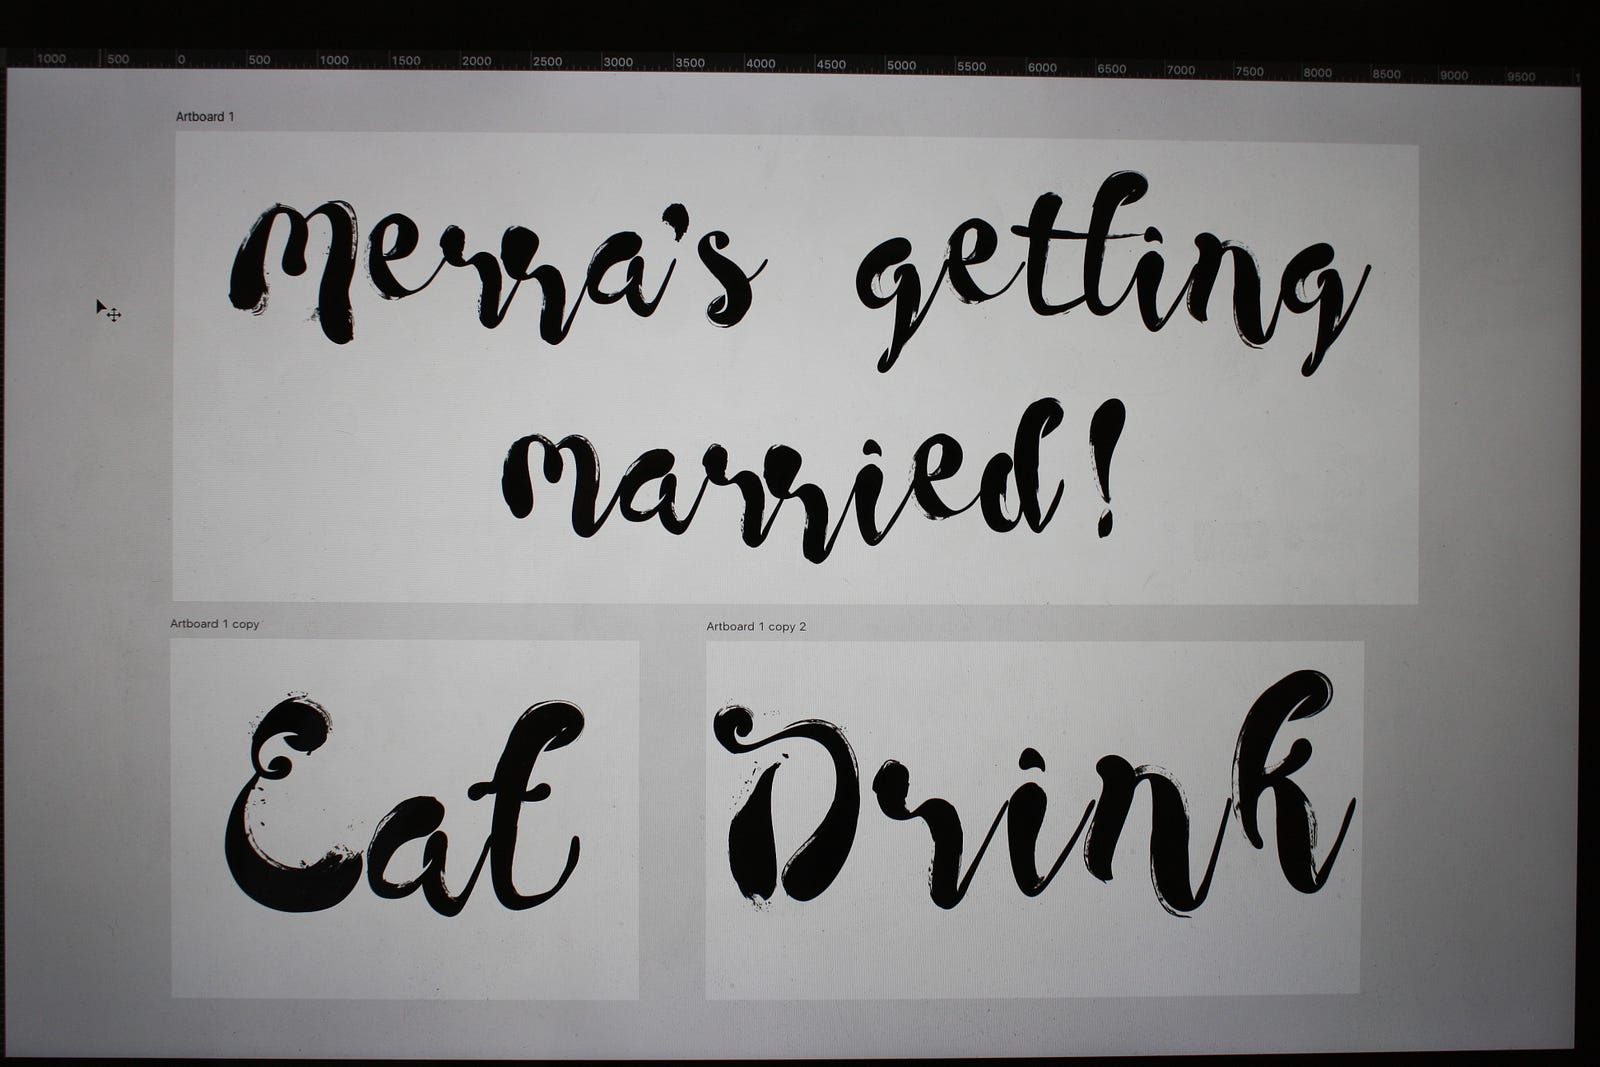 1000 500 0 500 1000 1500 2000 2500 3000 3500 4000 4500 5000 5500 6000 6500 7000 7500 8000 8500 9000 9500
Artboard 1
Merra's getting
married!
Artboard 1 copy
Artboard 1 copy 2
Eat
Drink